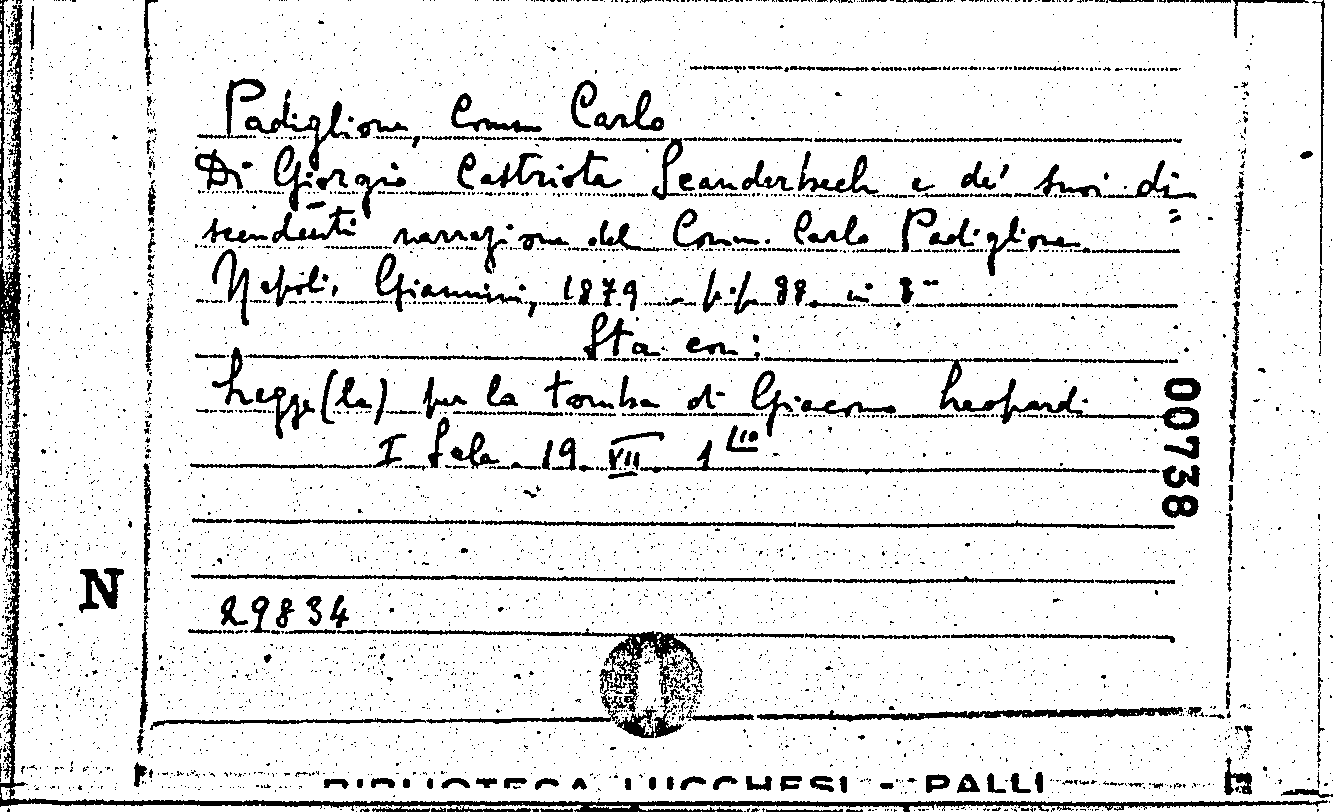 Padiglione, Comm Carlo
Di Giorgio Castriota Scanderbech e de' suoi di=
scendenti narrazione del Comm. Carlo Padiglione
Napoli, Giannini, 1879 - p.p. 88. in 8°
Sta con:
Legge (la) per la tomba di Giacomo Leopardi
I Sala. 19. VII. 1
00738
N
29834
BIBLIOTECA LUCCHESI - PALLI